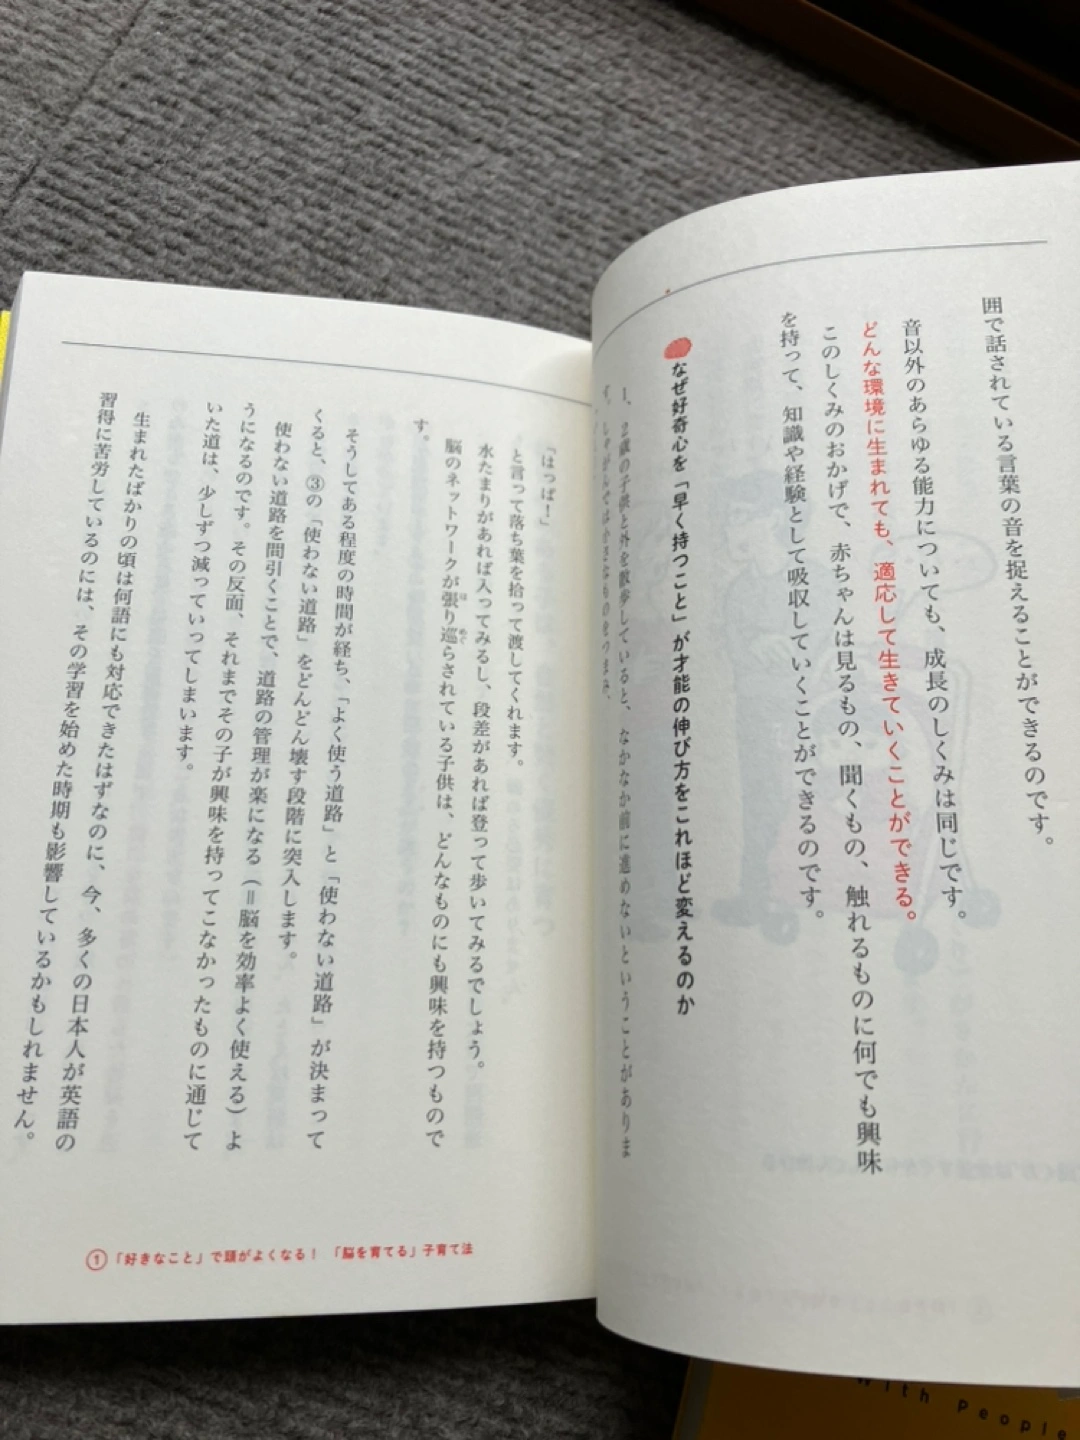 囲で話されている言葉の音を捉えることができるのです。
音以外のあらゆる能力についても、成長のしくみは同じです。
どんな環境に生まれても、適応して生きていくことができる。
このしくみのおかげで、赤ちゃんは見るもの、聞くもの、触れるものに何でも興味
を持って、知識や経験として吸収していくことができるのです。
なぜ好奇心を「早く持つこと」が才能の伸び方をこれほど変えるのか
1、2歳の子供と外を散歩していると、なかなか前に進めないということがありま
す。しゃがんでは小さなものをつまみ、
「はっぱ！」
と言って落ち葉を拾って渡してくれます。
水たまりがあれば入ってみるし、段差があれば登って歩いてみるでしょう。
脳のネットワークが張り巡らされている子供は、どんなものにも興味を持つもので
す。
そうしてある程度の時間が経ち、「よく使う道路」と「使わない道路」が決まって
くると、③の「使わない道路」をどんどん壊す段階に突入します。
使わない道路を間引くことで、道路の管理が楽になる（＝脳を効率よく使える）よ
うになるのです。その反面、それまでその子が興味を持ってこなかったものに通じて
いた道は、少しずつ減っていってしまいます。
生まれたばかりの頃は何語にも対応できたはずなのに、今、多くの日本人が英語の
習得に苦労しているのには、その学習を始めた時期も影響しているかもしれません。
①「好きなこと」で頭がよくなる！ 「脳を育てる」子育て法
With People